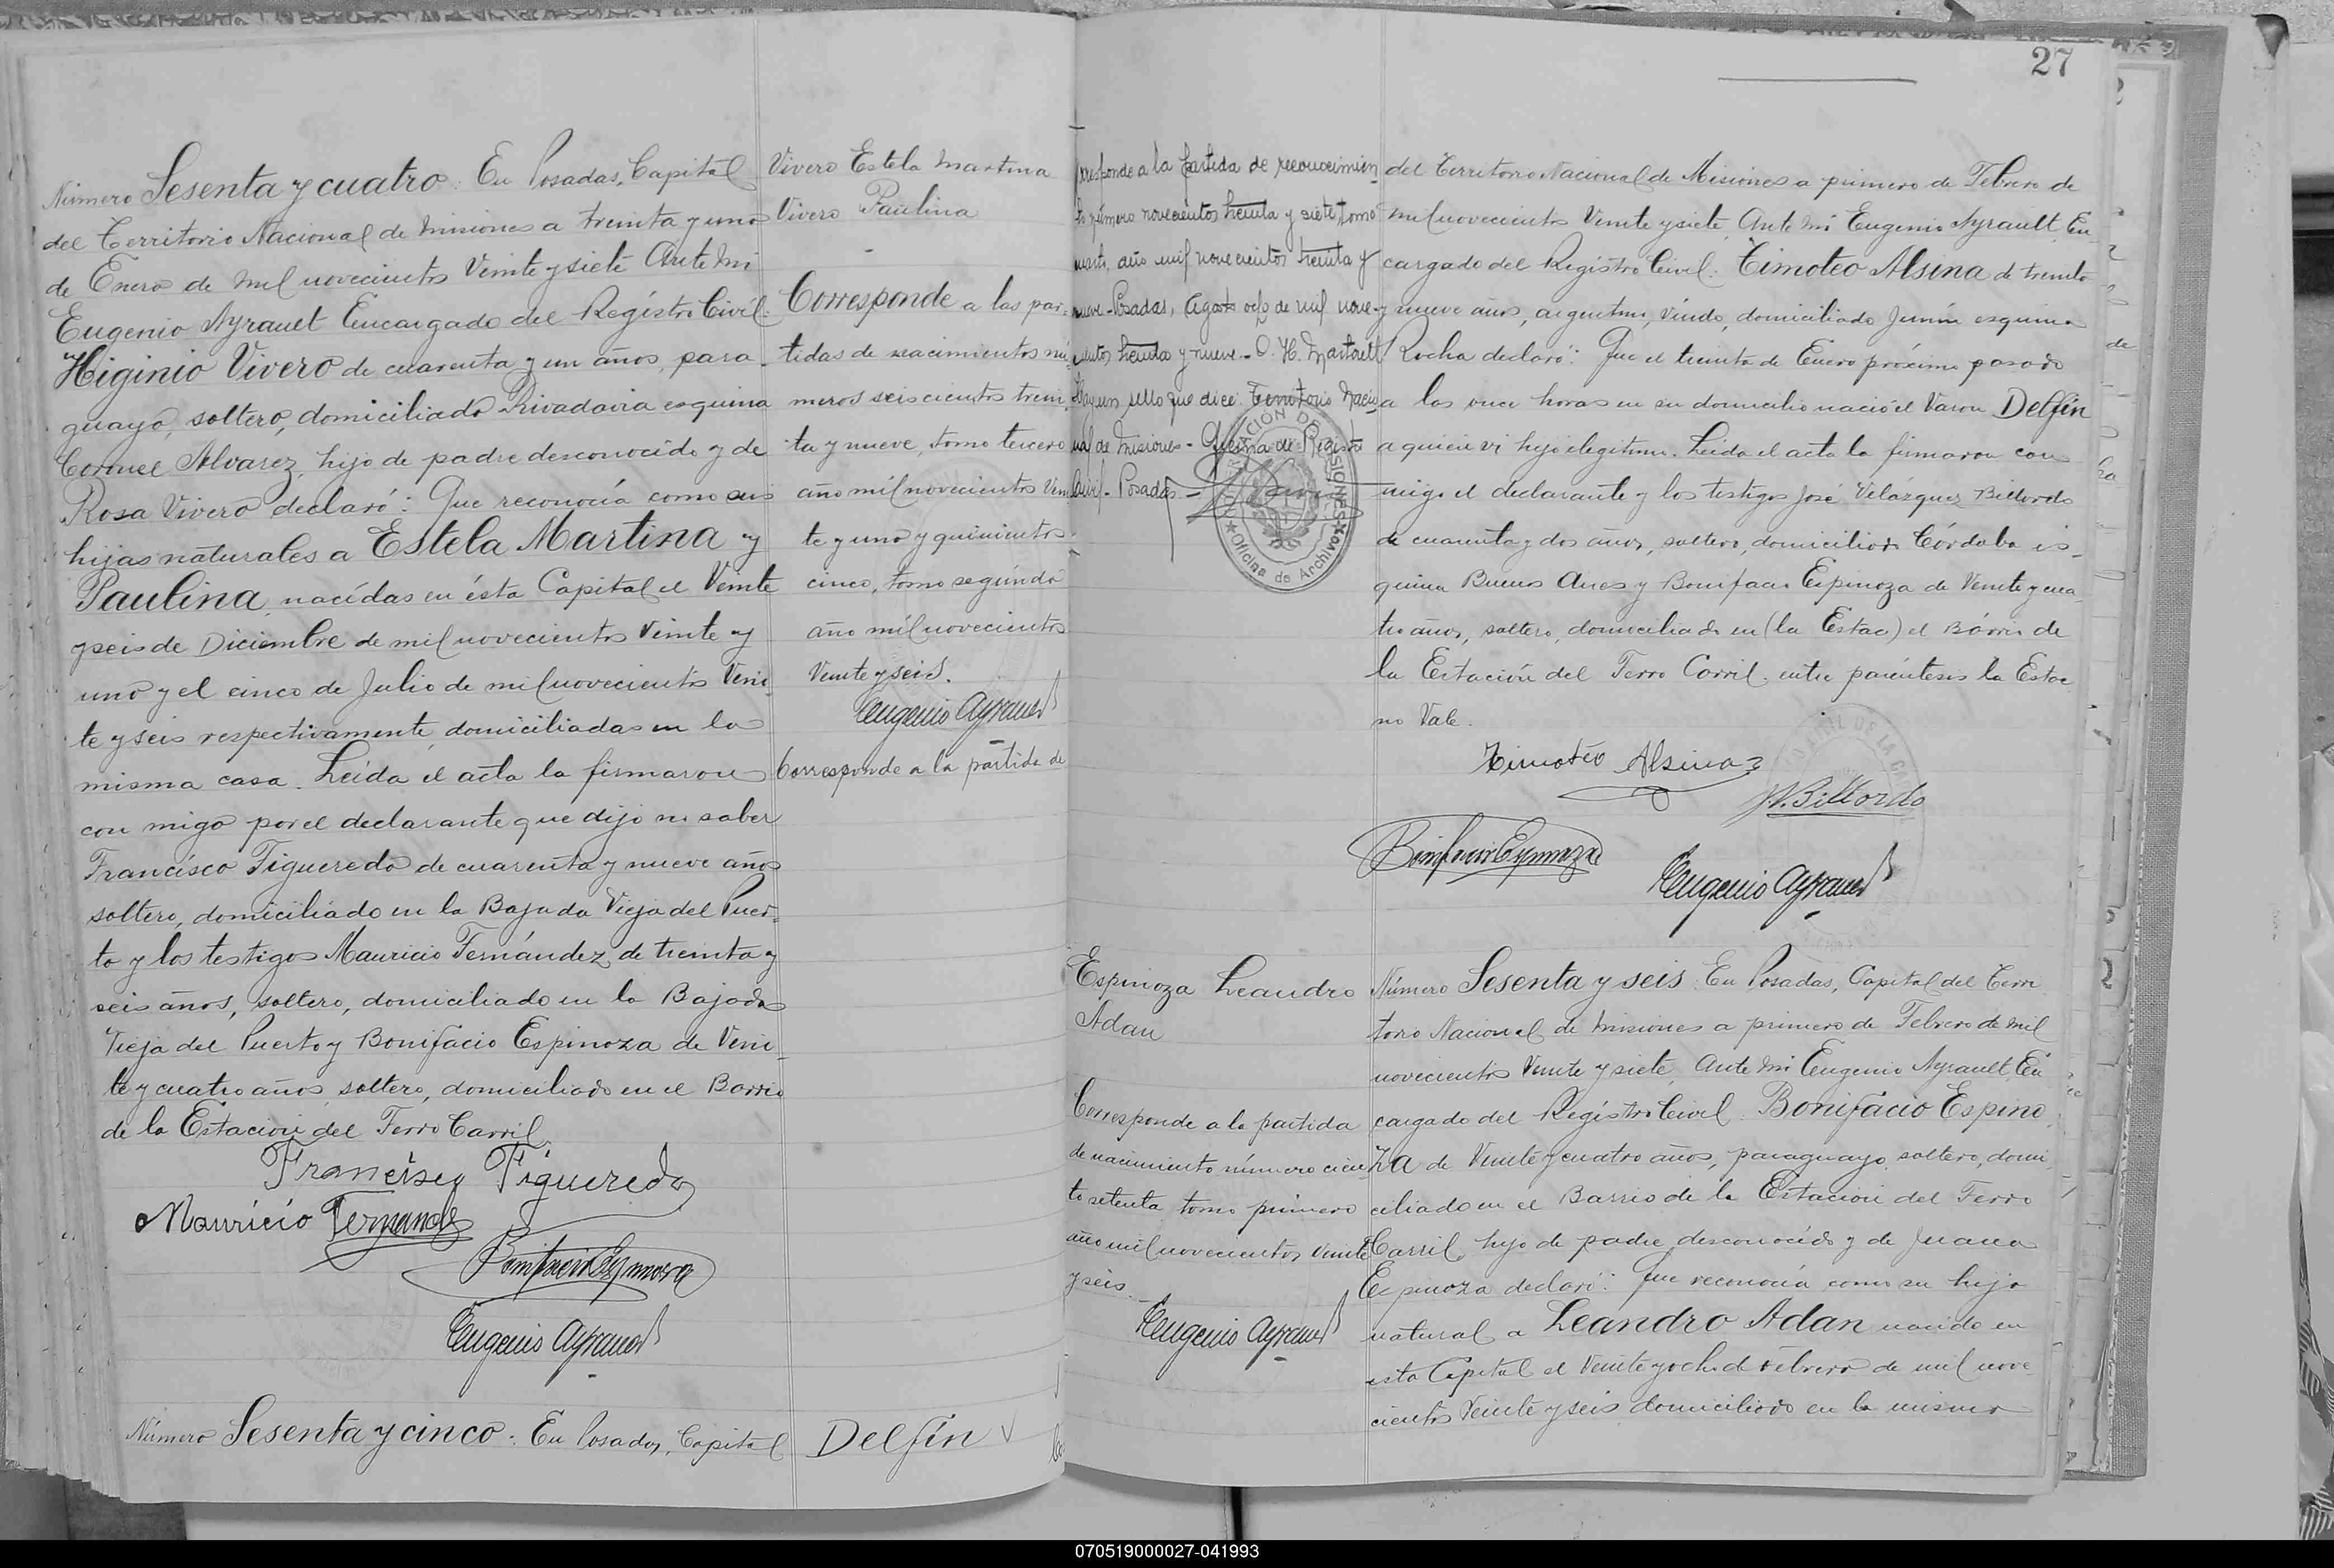 Número Sesenta y cuatro: En Posadas, Capital
del Territorio Nacional de Misiones a treinta y uno
de Enero de mil novecientos Veinte y siete Ante Mi
Eugenio Ayrault Encargado del Registro Civil:
Higinio Vivero de cuarenta y un años, para-
guayo, soltero, domiciliado Rivadavia esquina
Coronel Alvarez, hijo de padre desconocido y de
Rosa Vivero declaró: Que reconocía como sus
hijas naturales a Estela Martina y
Paulina nacidas en ésta Capital el Veinte
y seis de Diciembre de mil novecientos Veinte y
uno y el cinco de Julio de mil novecientos Vein-
te y seis respectivamente, domiciliadas en la
misma casa. Leída el acta la firmaron
con migo por el declarante que dijo no saber
Francisco Figueredo de cuarenta y nueve años
soltero, domiciliado en la Bajada Vieja del Puer-
to y los testigos Mauricio Fernández de treinta y
seis años, soltero, domiciliado en la Bajada
Vieja del Puerto y Bonifacio Espinoza de Vein-
te y cuatro años soltero, domiciliado en el Barrio
de la Estación del Ferro Carril.
Francisco Figueredo
Mauricio Fernandez
Bonifacio Espinoza
Eugenio Ayrault
Número Sesenta y cinco: En Posadas, Capital
Vivero Estela Martina
Vivero Paulina
Corresponde a las par-
tidas de nacimientos nú-
meros seiscientos trein-
ta y nueve, tomo tercero
año mil novecientos Vein-
te y uno y quinientos
cinco, tomo segundo
año mil novecientos
Veinte y seis.
Eugenio Ayrault
Corresponde a la partida de
Delfín
27
rresponde a la partida de reconocimien-
to número novecientos treinta y siete tomo
cuarto, año mil novecientos treinta y
nueve. Posadas, Agosto ocho de mil nove-
cientos treinta y nueve. O. H. Martorell
Hay un sello que dice: Territorio Nacio-
nal de Misiones - Oficina de Registro
Civil - Posadas.
Oficina de Archivos
del Territorio Nacional de Misiones a primero de Febrero de
mil novecientos Veinte y siete, Ante Mi Eugenio Ayrault, En-
cargado del Registro Civil: Timoteo Alsina de treinta
y nueve años, argentino, viudo, domiciliado Junín esquina
Rocha declaró: Que el treinta de Enero próximo pasado
a las once horas en su domicilio nació el Varon Delfín
a quien vi hijo ilegítimo. Leída el acta la firmaron con
migo el declarante y los testigos José Velázquez Billordo
de cuarenta y dos años, soltero, domiciliado Córdoba es-
quina Buenos Aires y Bonifacio Espinoza de Veinte y cua-
tro años, soltero, domiciliado en (la Estac) el Bárrio de
la Estación del Ferro Carril. entre paréntesis la Estac
no Vale.
Timoteo Alsina
J.V. Billordo
Bonifacio Espinoza
Eugenio Ayrault
Espinoza Leandro
Adan
Corresponde a la partida
de nacimiento número cien-
to setenta tomo primero
año mil novecientos Veinte
y seis.
Eugenio Ayrault
Número Sesenta y seis: En Posadas, Capital del Terri
torio Nacional de Misiones a primero de Febrero de mil
novecientos Veinte y siete, Ante Mi Eugenio Ayrault, En
cargado del Registro Civil: Bonifacio Espino
za de Veinte y cuatro años, paraguayo, soltero, domi
ciliado en el Barrio de la Estación del Ferro
Carril, hijo de padre desconocido y de Juana
Espinoza declaró: Que reconocía como su hijo
natural a Leandro Adan nacido en
esta Capital el Veinte y ocho d Febrero de mil nove-
cientos Veinte y seis domiciliado en la misma
070519000027-041993